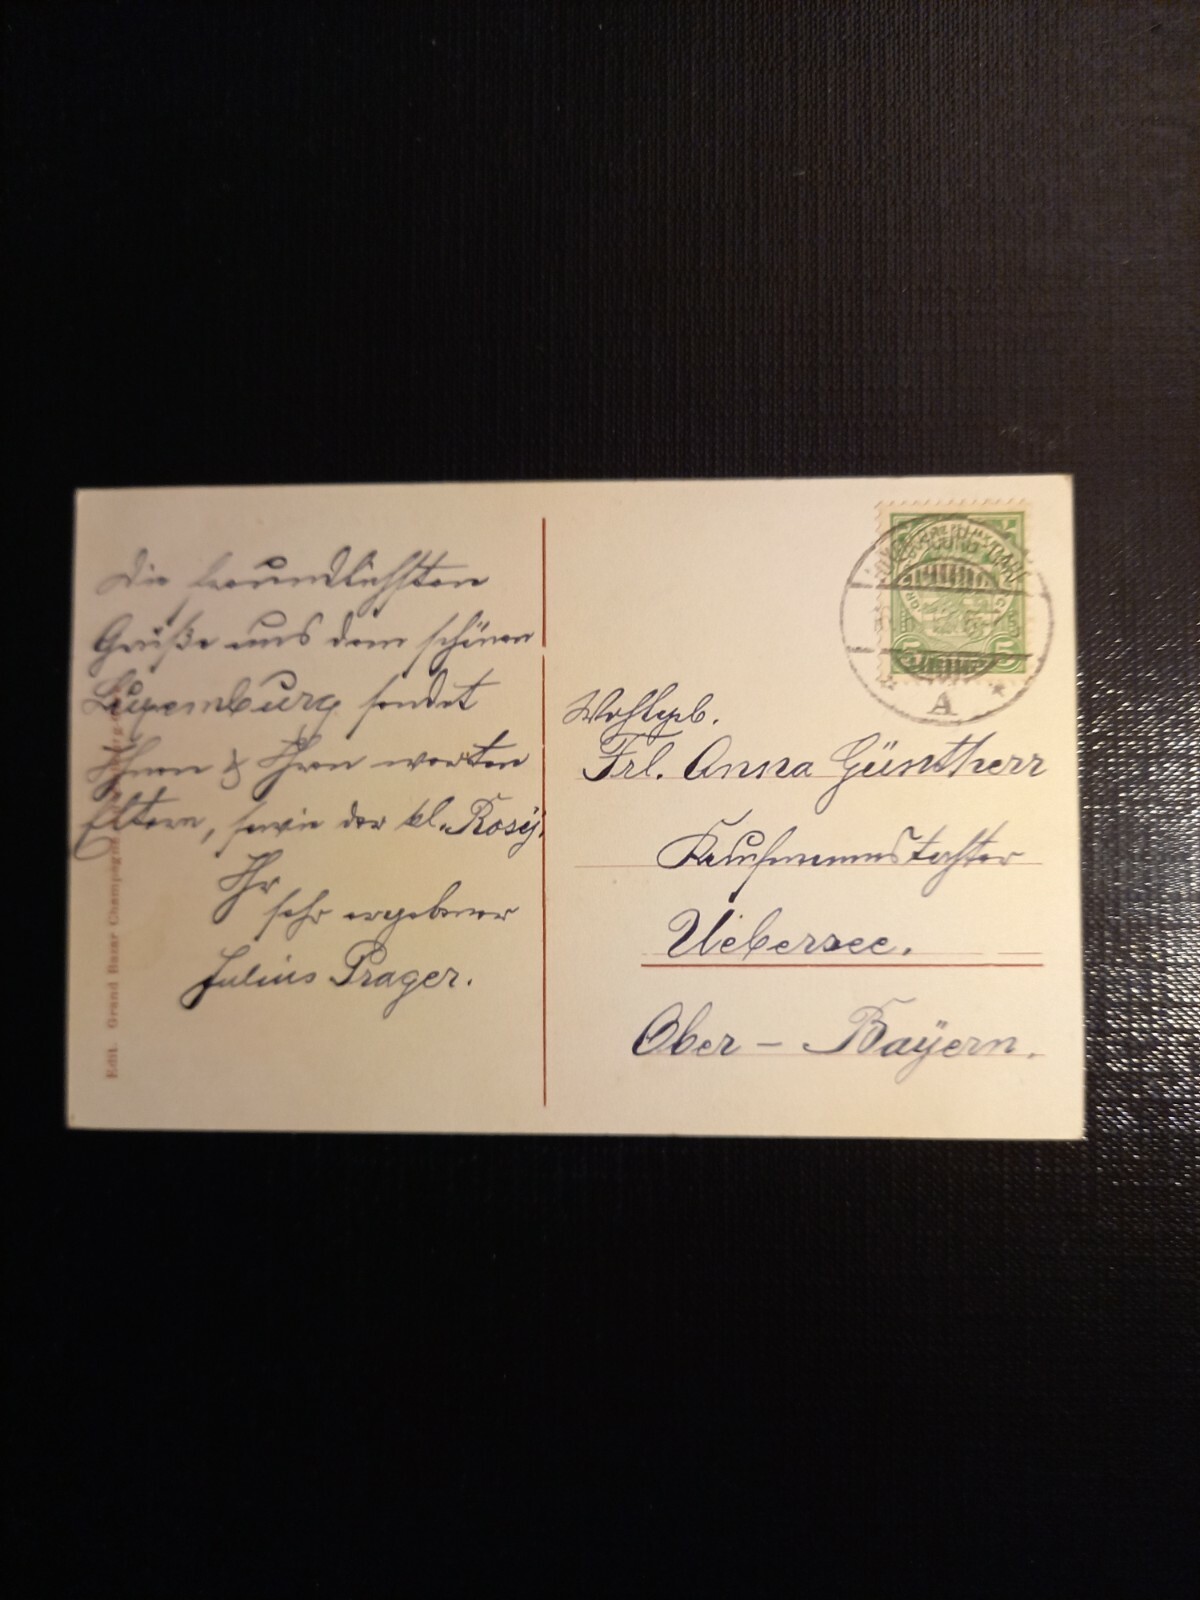 Die freundlichsten
Grüße aus dem schönen
Luxemburg sendet
Ihnen & Ihren werten
Eltern, sowie der kl. Rosÿ.
Ihr
sehr ergebener
Julius Prager.
Edit. Grand Bazar Champagne
Wohlgeb.
Frl. Anna Güntherr
Kaufmannstochter
Uebersee.
Ober - Bayern.
5 5
A